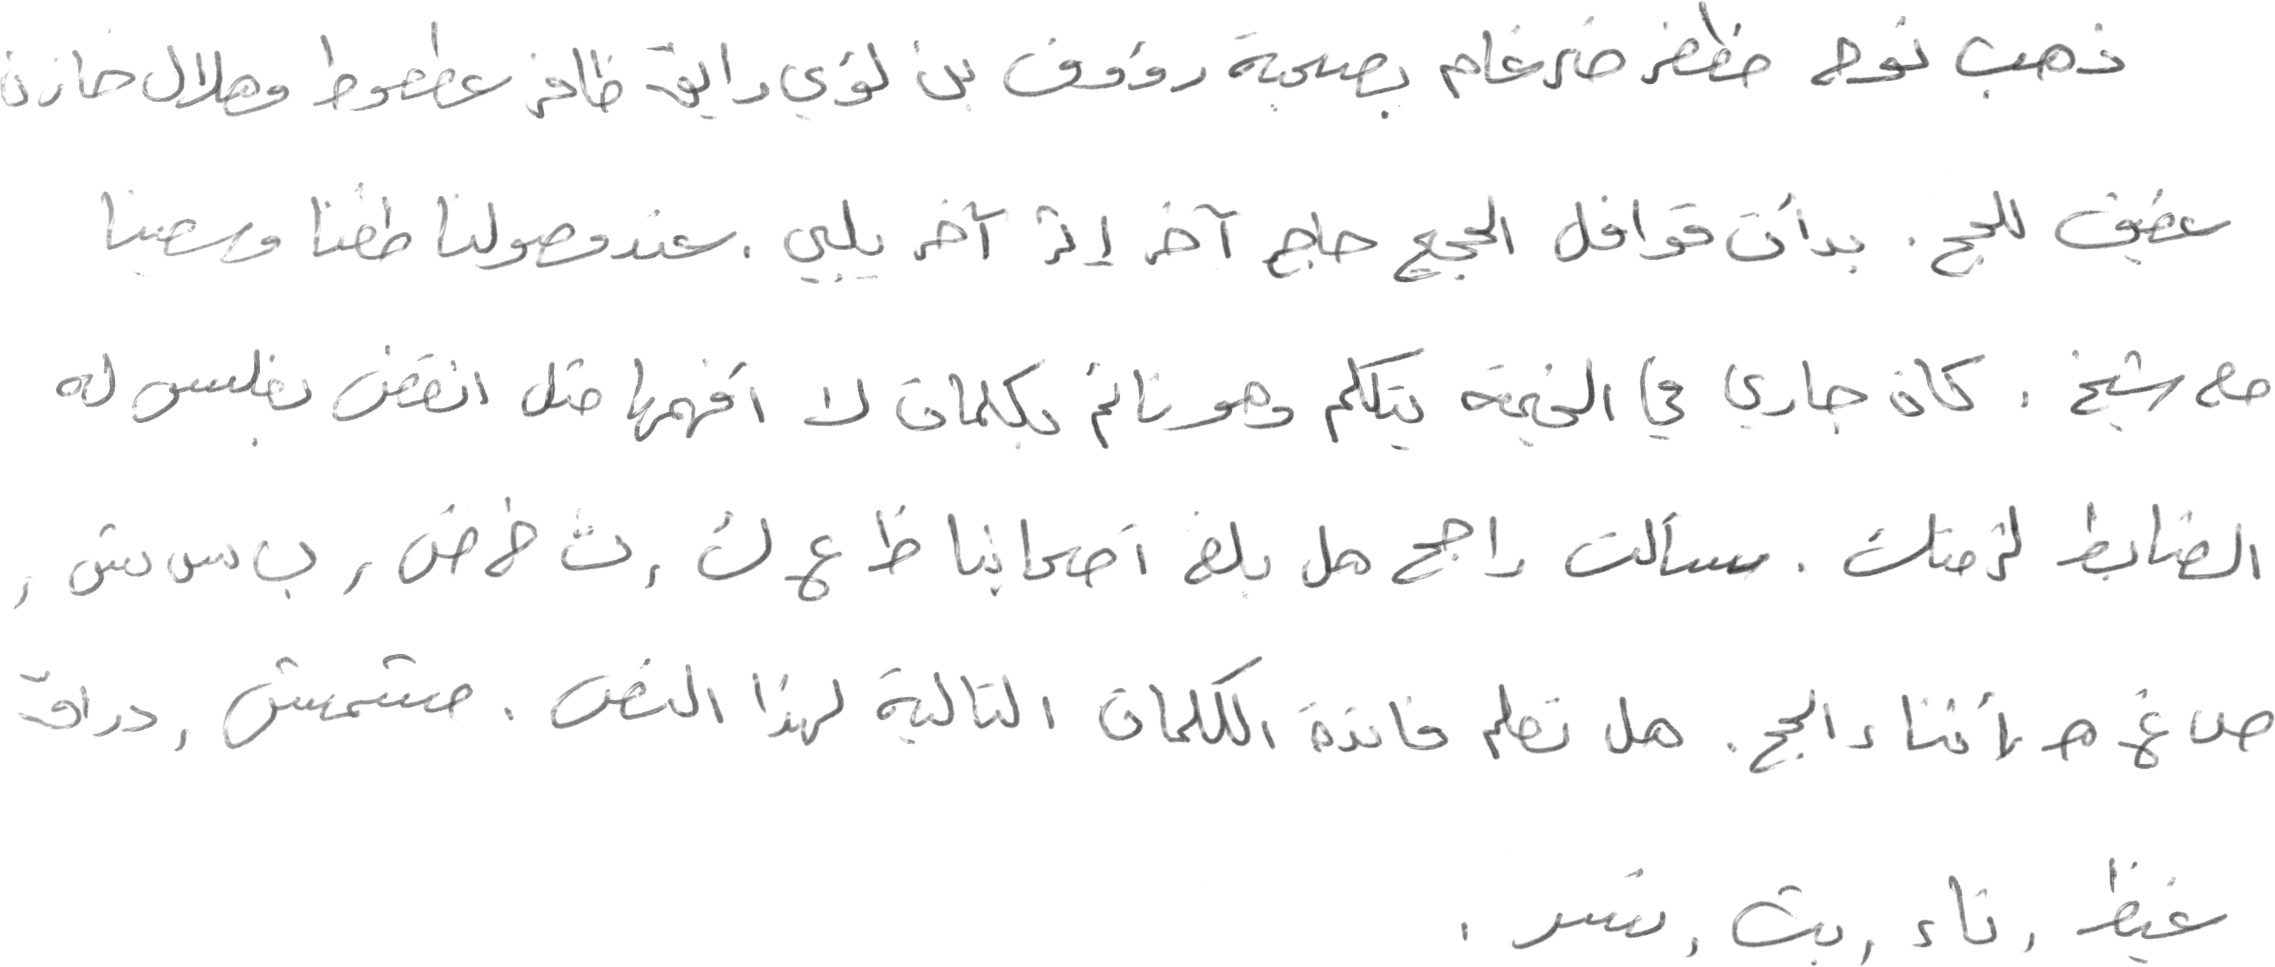 ذهب نوح مظفر ضرغام بصحبة رؤوف بن لؤي رايق ظافر عطعوط وهلال خازن
عفيف للحج . بدأت قوافل الحجيج حاج آخر إثر آخر يلبي . عند وصولنا طفنا وسعينا
مع شيخ . كان جاري في الخيمة يتكلم وهو نائم بكلمات لا أفهمها مثل انقض بغلس له
الضابط لزمتك . سألت راجح هل بلغ أصحابنا ظ ع ن , ث خ ض , ب س ش ,
ص غ ه أثناء الحج . هل تعلم فائدة الكلمات التالية لهذا النص . مشمش , دراق
غيظ , ناء , بت , نسر .